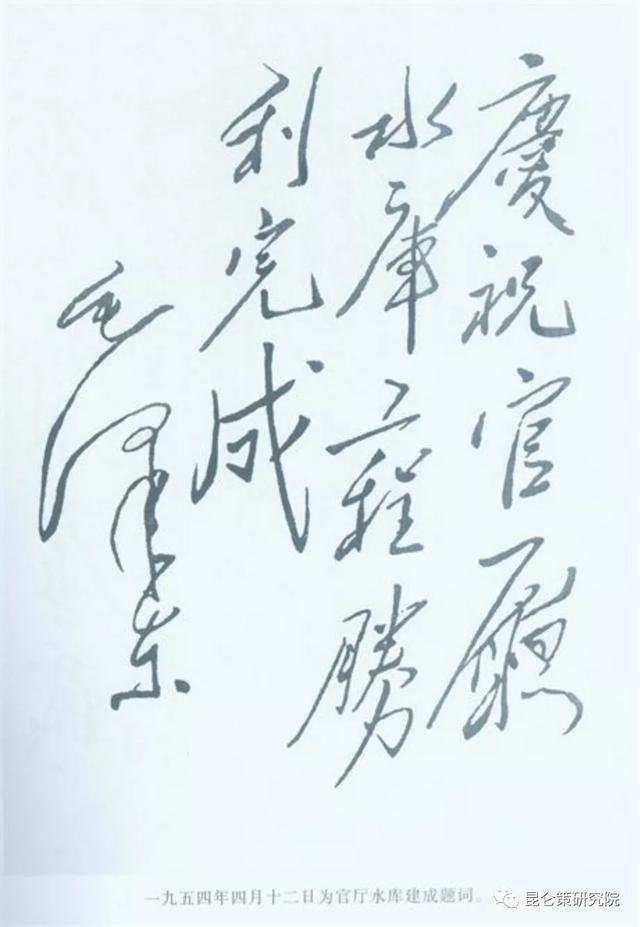 慶祝官廳
水庫工程勝
利完成
毛澤东
一九五四年四月十二日为官厅水库建成题词。
昆仑策研究院